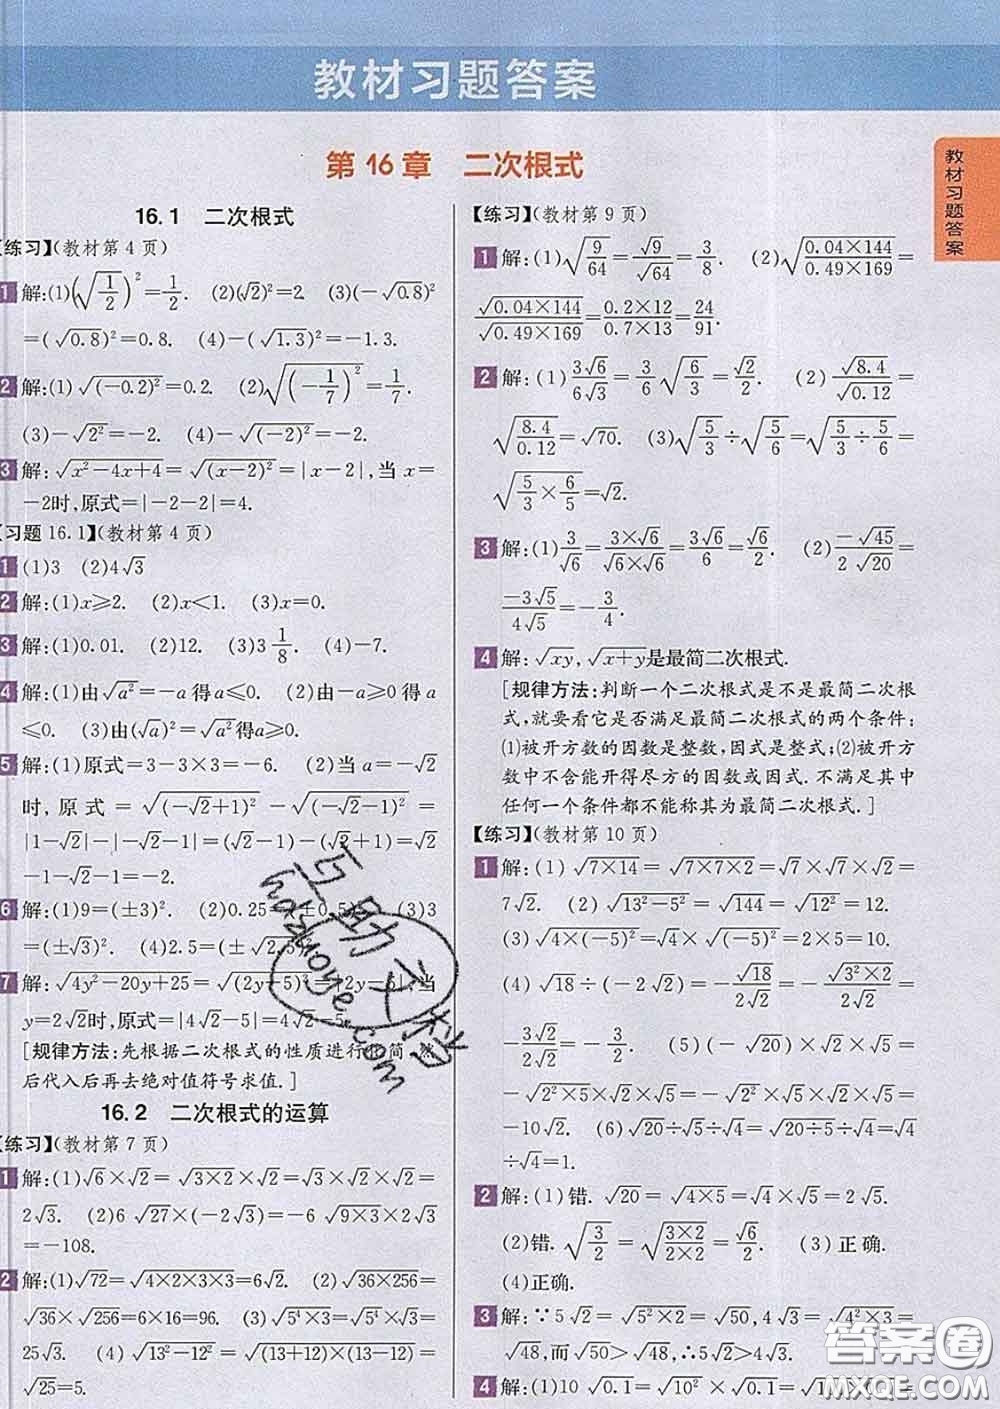 教材习题答案
第 16 章 二次根式
16.1 二次根式
【练习】(教材第 4 页)
1 解:(1)(√(1/2))²=1/2. (2)(√2)²=2. (3)(-√0.8)²
=(√0.8)²=0.8. (4)-(√1.3)²=-1.3.
2 解:(1)√(-0.2)²=0.2. (2)√(-1/7)²=1/7.
(3)-√2²=-2. (4)-√(-2)²=-2.
3 解:√(x²-4x+4)=√(x-2)²=|x-2|,当 x=
-2时,原式=|-2-2|=4.
【习题 16.1】(教材第 4 页)
1 (1)3 (2)4√3
2 解:(1)x≥2. (2)x<1. (3)x=0.
3 解:(1)0.01. (2)12. (3)3 1/8. (4)-7.
4 解:(1)由√a²=-a 得 a≤0. (2)由-a≥0得 a
≤0. (3)由(√a)²=√a²得a≥0.
5 解:(1)原式=3-3×3=-6. (2)当 a=-√2
时,原式=√(-√2+1)²-√(-√2-1)²=
|1-√2|-|-√2-1|=(√2-1)-(√2+1)=√2
-1-√2-1=-2.
6 解:(1)9=(±3)². (2)0.25=(±0.5)². (3)3
=(±√3)². (4)2.5=(±√2.5)².
7 解:√(4y²-20y+25)=√(2y-5)²=|2y-5|,当
y=2√2时,原式=|4√2-5|=4√2-5.
[规律方法:先根据二次根式的性质进行化简,然
后代入后再去绝对值符号求值.]
16.2 二次根式的运算
【练习】(教材第 7 页)
1 解:(1)√6×√2=√(3×2×2)=√3×√2×√2=
2√3. (2)6√27×(-2√3)=-6√(9×3)×2√3
=-108.
2 解:(1)√72=√(4×2×3×3)=6√2. (2)√(36×256)=
√36×√256=6×16=96. (3)√(5⁴×3)=√5⁴×√3=
25√3. (4)√(13²-12²)=√((13+12)×(13-12))=
√25=5.
【练习】(教材第 9 页)
1 解:(1)√(9/64)=√9/√64=3/8. (2)√((0.04×144)/(0.49×169))=
√(0.04×144)/√(0.49×169)=(0.2×12)/(0.7×13)=24/91.
2 解:(1)3√6/6√3=3/6√(6/3)=√2/2. (2)√8.4/√0.12=
√(8.4/0.12)=√70. (3)√(5/3)÷√(5/6)=√(5/3÷5/6)=
√(5/3×6/5)=√2.
3 解:(1)3/√6=(3×√6)/(√6×√6)=3√6/6=√6/2. (2)-√45/2√20=
-3√5/4√5=-3/4.
4 解:√xy,√(x+y)是最简二次根式.
[规律方法:判断一个二次根式是不是最简二次根
式,就要看它是否满足最简二次根式的两个条件:
(1)被开方数的因数是整数,因式是整式;(2)被开方
数中不含能开得尽方的因数或因式.不满足其中
任何一个条件都不能称其为最简二次根式.]
【练习】(教材第 10 页)
1 解:(1)√(7×14)=√(7×7×2)=√7×√7×√2=
7√2. (2)√(13²-5²)=√144=√12²=12.
(3)√(4×(-5)²)=√4×√(-5)²=2×5=10.
(4)√18÷(-2√2)=-√18/2√2=-√(3²×2)/2√2=
-3√2/2√2=-3/2. (5)(-√20)×√2×√5=
-√20×√2×√5=-√(20×2×5)=-√(10²×2)=
-10√2. (6)√20÷√5÷√4=√(20÷5)÷√4=√4
÷√4=1.
2 解:(1)错.√20=√(4×5)=√4×√5=2√5.
(2)错.√(3/2)=√((3×2)/(2×2))=√6/2. (3)正确.
(4)正确.
3 解:∵5√2=√(5²×2)=√50,4√3=√(4²×3)=
√48,而√50>√48,∴5√2>4√3.
4 解:(1)10√0.1=√10²×√0.1=
教材习题答案
互助文档
hdzuoye.com
答案圈
MXQE.COM